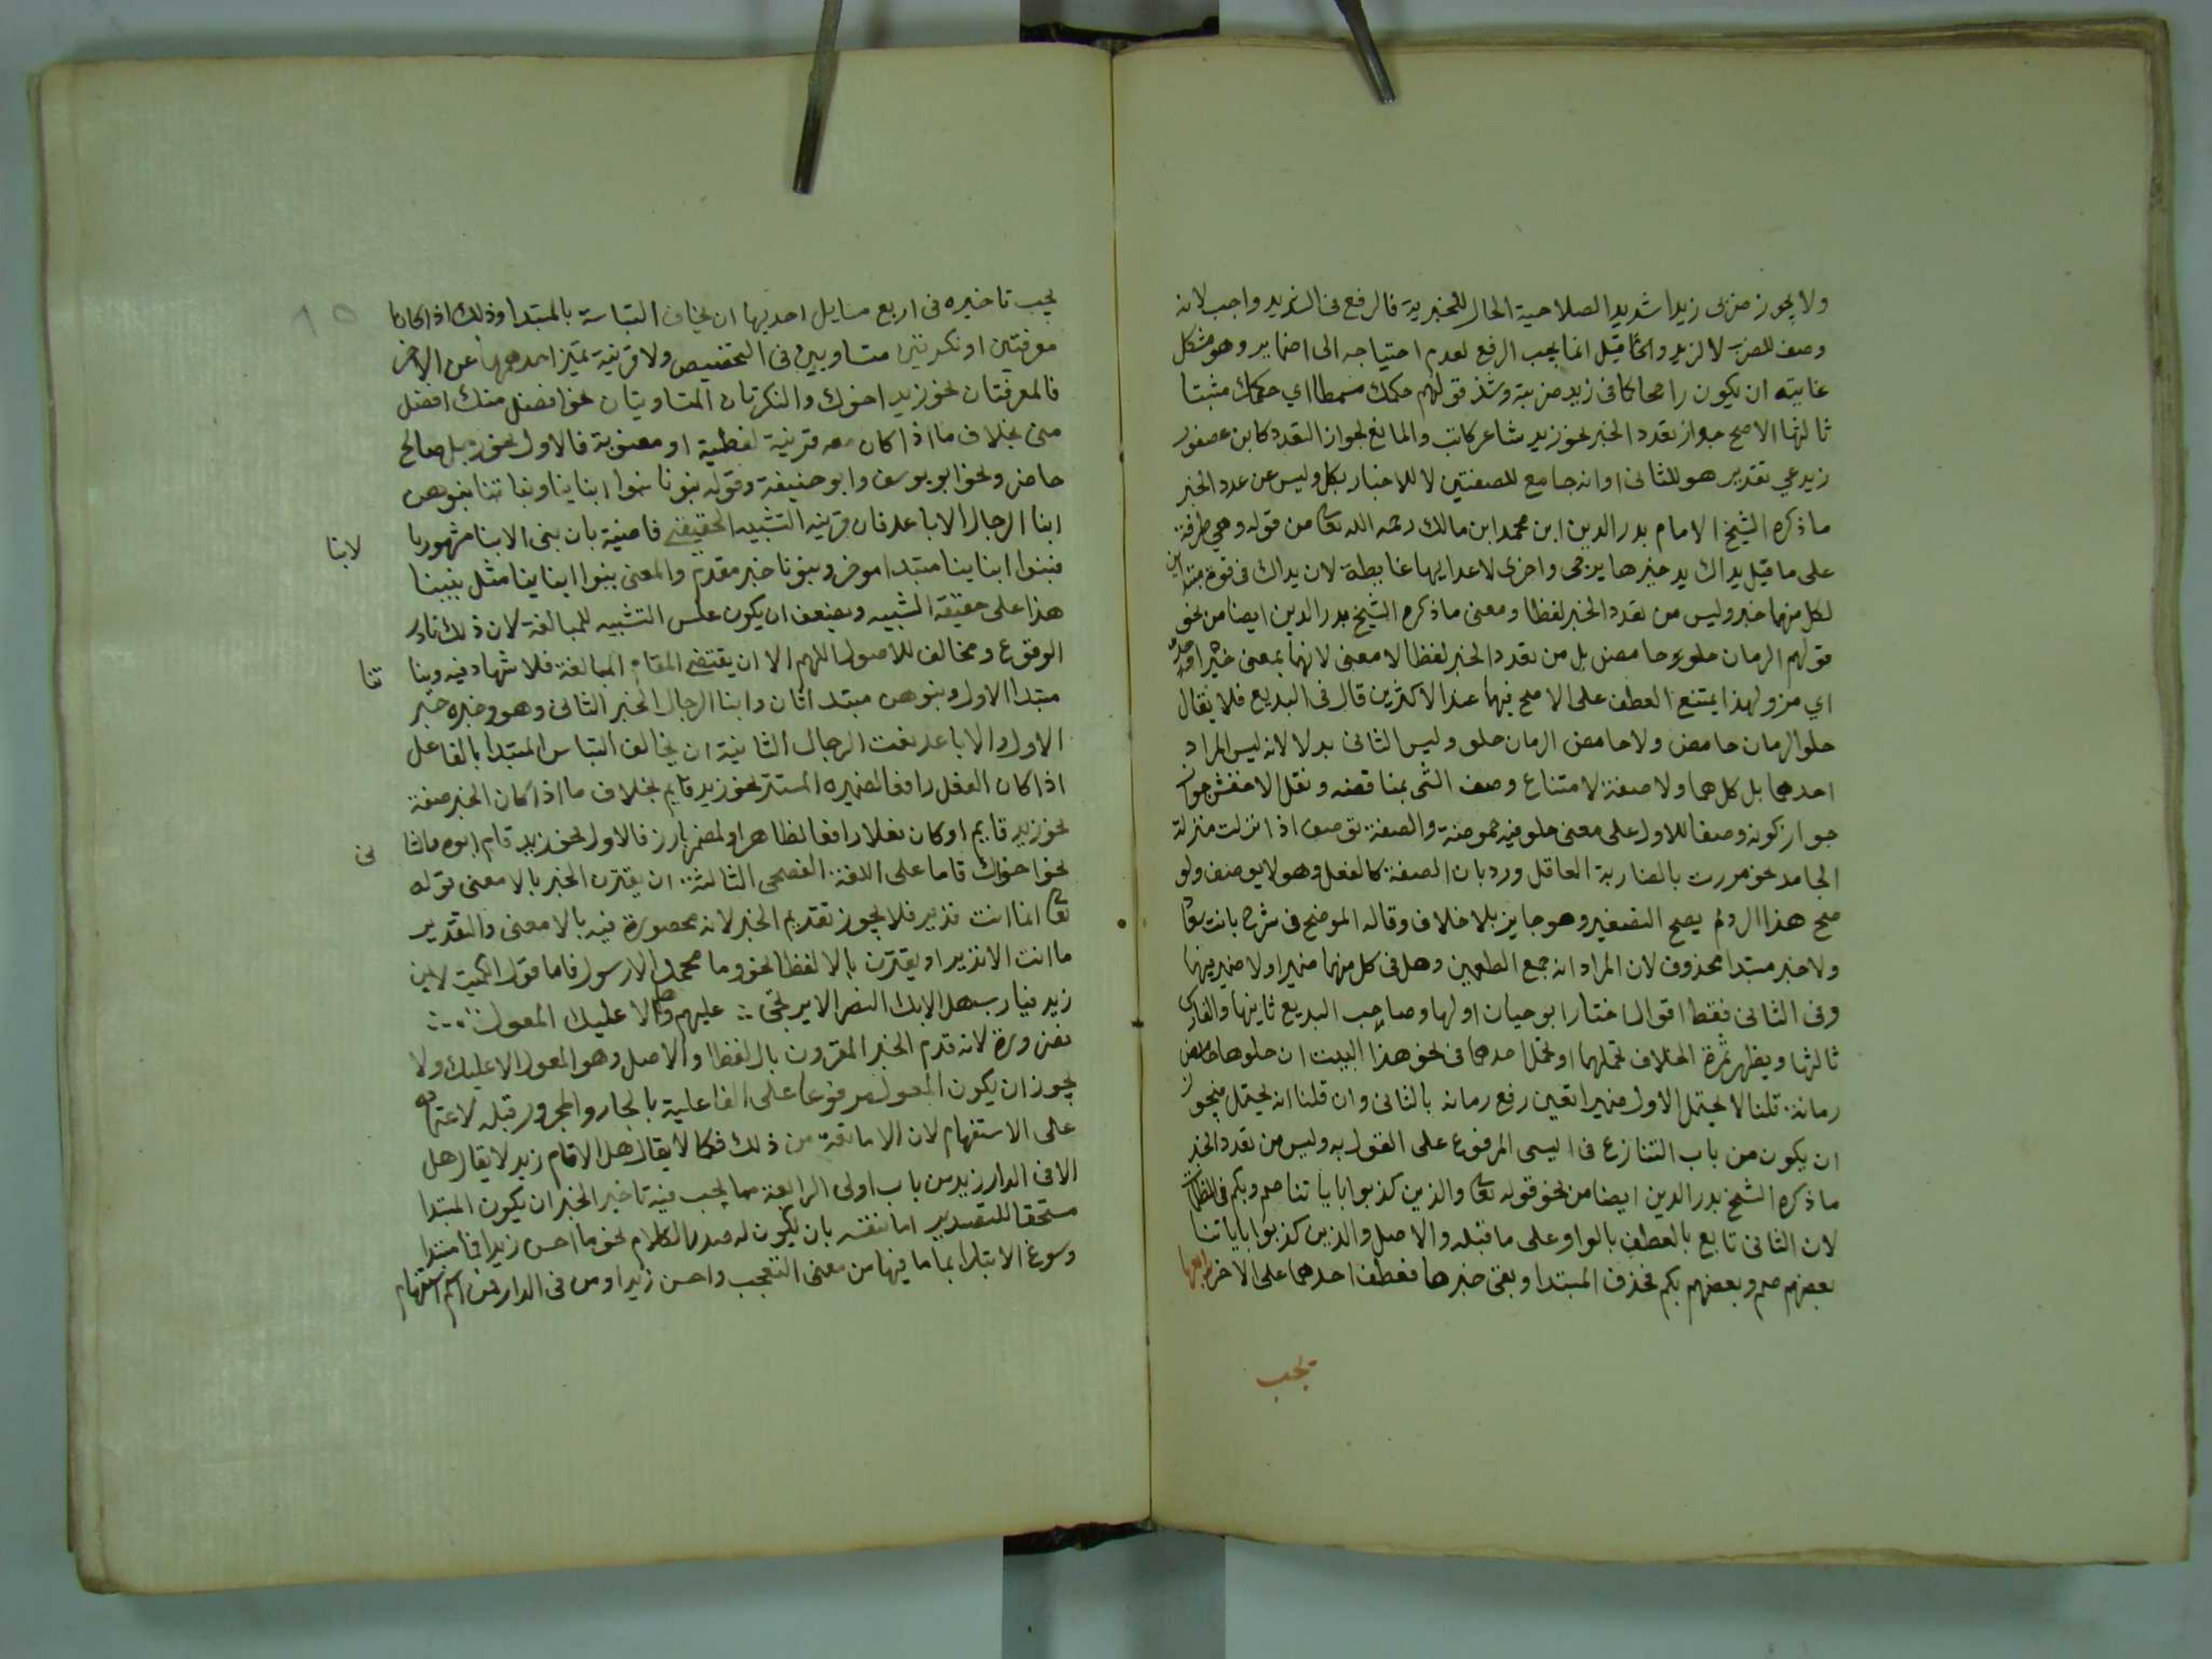 ولا يجوز ضربى زيدا شديدا لصلاحية الحال للخبرية فالرفع فى شديد واجب لانه
وصف للضرب لا لزيد وانما قيل انما يجب الرفع لعدم احتياجه الى اضمار وهو مشكل
غايته ان يكون راجحا كما فى زيد ضربته وشذ قولهم حكمك مسمطا اي حكمك مثبتا
ثالثها الاصح جواز تعدد الخبر نحو زيد شاعر كاتب والمانع لجواز التعدد كابن عصفور
زيدعي تقدير هو للثانى او انه جامع للصفتين لا للاخبار بكل وليس عن عدد الخبر
ما ذكره الشيخ الامام بدر الدين ابن محمد ابن مالك رحمه الله تعا من قوله وهي طرفة
على ما قيل يداك يد خيرها يرجى واخرى لاعدايها غايظة لان يداك فى قوة مبتداين
لكل منهما خبر وليس من تعدد الخبر لفظا ومعنى ما ذكره الشيخ بدر الدين ايضا من نحو
قولهم الرمان حلو حامض بل من تعدد الخبر لفظا لا معنى لانهما بمعنى خبر واحد
اي مز ولهذا يمتنع العطف على الاصح فيها عند الاكثرين قال فى البديع فلا يقال
حلو الرمان حامض ولا حامض الرمان حلو وليس الثانى بدلا لانه ليس المراد
احدهما بل كلاهما ولا صفة لامتناع وصف الشى بمناقضه ونقل الاخفش جوا
جواز كونه وصفا للاول على معنى حلو فيه حموضة والصفة توصف اذا نزلت منزلة
الجامد نحو مررت بالضاربة العاقل ورد بان الصفة كالفعل وهو لا يوصف ولو
صح هذا الرد لم يصح التصغير وهو جايز بلا خلاف وقاله الموضح فى شرح بانت سعا
ولا خبر مبتدا محذوف لان المراد انه جمع الطعمين وهل فى كل منهما ضمير او لا ضمير فيهما
وفى الثانى فقط اقوال اختار ابو حيان اولها وصاحب البديع ثانيها والفارسى
ثالثها ويظهر ثمرة الخلاف تحملهما او تحمل احدهما فى نحو هذا البيت ان حلوها حامض
رمانه قلنا لا يحتمل الاول ضميرا تعين رفع رمانه بالثانى وان قلنا انه يحتمل فيجوز
ان يكون من باب التنازع فى السببى المرفوع على القول به وليس من تعدد الخبر
ما ذكره الشيخ بدر الدين ايضا من نحو قوله تعا والذين كذبوا باياتنا صم وبكم فى الظلمات
لان الثانى تابع بالعطف بالواو على ما قبله والاصل والذين كذبوا باياتنا
بعضهم صم وبعضهم بكم فحذف المبتدا وبقى خبرها فعطف احدهما على الاخر رابعها
يجب
يجب تاخيره فى اربع مسايل احديها ان يخاف التباسه بالمبتدا وذلك اذا كانا
معرفتين او نكرتين متساويين فى التخصيص ولا قرينة تميز احدهما عن الاخر
فالمعرفتان نحو زيد اخوك والنكرتان المتساويتان نحو افضل منك افضل
منى بخلاف ما اذا كان معه قرينة لفظية او معنوية فالاول نحو رجل صالح
حاضر ونحو ابو يوسف وابو حنيفة وقوله بنونا بنوا ابناينا وبناتنا بنوهن
ابنا الرجال الاباعد فان قرينه التشبيه الحقيقى قاضية بان بنى الابنا مشهور با لابنا
فبنوا ابناينا مبتدا موخر وبنونا خبر مقدم والمعنى بنوا ابناينا مثل بنينا
هذا على حقيقة التشبيه ويضعف ان يكون عكس التشبيه للمبالغة لان ذلك نادر
الوقوع ومخالف للاصول اللهم الا ان يقتضى المقام المبالغة فلا شهاد فيه وبنا تنا
مبتدا الاول وبنوهن مبتدا ثان وابنا الرجال الخبر الثانى وهو وخبره خبر
الاول والاباعد نعت الرجال الثانية ان يخاف التباس المبتدا بالفاعل
اذا كان الفعل رافعا لضميره المستتر نحو زيد قايم بخلاف ما اذا كان الخبر صفة
نحو زيد قايم او كان فعلا رافعا لظاهر او لضمير بارز فالاول نحو زيد قام ابوه والثا نى
نحو اخواك قاما على اللغة الفصحى الثالثة ان يقترن الخبر بالا معنى نحو قوله
تعا انما انت نذير فلا يجوز تقديم الخبر لانه محصورة فيه بالا معنى والتقدير
ما انت الا نذير او يقترن بالا لفظا نحو وما محمد الا رسول فاما قول الكميت لابن
زيد فيارب هل الا بك النصر الا يرتجى ∴ عليهم وهل الا عليك المعول ∴
فضرورة لانه قدم الخبر المقرون بالا لفظا والاصل وهو المعول الا عليك ولا
يجوز ان يكون المعول مرفوعا على الفاعلية بالجار والمجرور قبله لاعتماده
على الاستفهام لان الا مانعة من ذلك فكما لا يقال هل الا قام زيد لا يقال هل
الا فى الدار زيد من باب اولى الرابعة مما يجب فيه تاخير الخبر ان يكون المبتدا
مستحقا للتصدير اما بنفسه بان يكون له صدر الكلام نحو ما احسن زيدا فما مبتدا
وسوغ الابتدا بما ما فيها من معنى التعجب واحسن زيدا ومن فى الدار فمن اسم استفهام